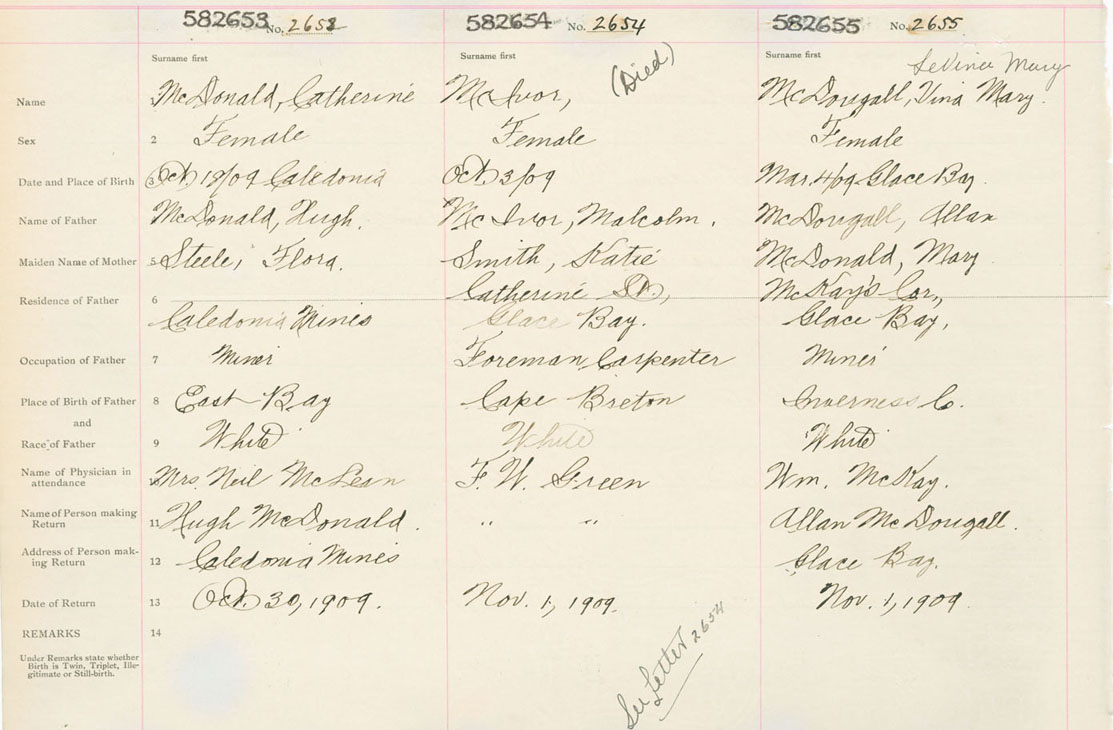 582653 No. 2653 582654 No. 2654 582655 No. 2655
Surname first Surname first Surname first
(Died) LeVina Mary
Name McDonald, Catherine McIvor, McDougall, Vina Mary.
Sex 2 Female Female Female
Date and Place of Birth 3 Oct. 19/09 Caledonia Oct. 3/09 Mar. 4/09 Glace Bay.
Name of Father McDonald, Hugh. McIvor, Malcolm. McDougall, Allan
Maiden Name of Mother 5 Steele, Flora. Smith, Katie McDonald, Mary
Residence of Father 6 Catherine St., McKay's Cor.,
Caledonia Mines Glace Bay. Glace Bay.
Occupation of Father 7 Miner Foreman Carpenter Miner
Place of Birth of Father 8 East Bay Cape Breton Inverness Co.
and
Race of Father 9 White White White
Name of Physician in
attendance Mrs. Neil McLean F. W. Green Wm. McKay.
Name of Person making
Return 11 Hugh McDonald. " " Allan McDougall.
Address of Person mak-
ing Return 12 Caledonia Mines Glace Bay.
Date of Return 13 Oct. 30, 1909. Nov. 1, 1909. Nov. 1, 1909.
REMARKS 14
Under Remarks state whether
Birth is Twin, Triplet, Ille-
gitimate or Still-birth.
See Letter 2654